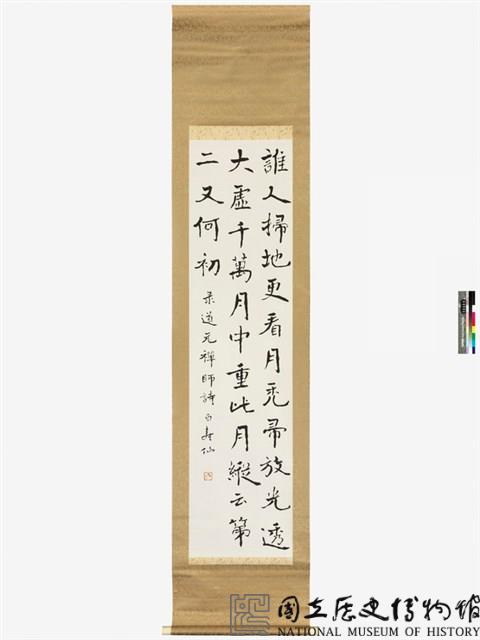 誰人掃地更看月禿帚放光透
大虛千萬月中重此月縱云第
二又何初
录道元禪師詩 百壽仙
國立歷史博物館
NATIONAL MUSEUM OF HISTORY